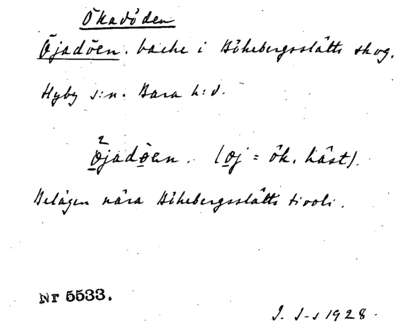 Ökadöden
Öjadöen. backe i Bökebergsslätts skog.
Hyby s:n. Bara h:d.
2
öjadöen. (oj = ök, häst).
Belägen nära Bökebergsslätts tivoli.
Nr 5533.
I. I-s 1928.